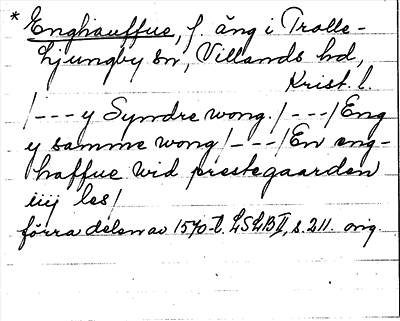 * Enghauffue, f. äng i Trolle-
Ljungby sn, Villands hd,
Krist. l.
/---y Syndre wong. /---/ Eng
y samme wong /---/ En eng-
haffue wid prestegaarden
iiij les/
förra delen av 1570-t. LSLB II, s. 211. orig.